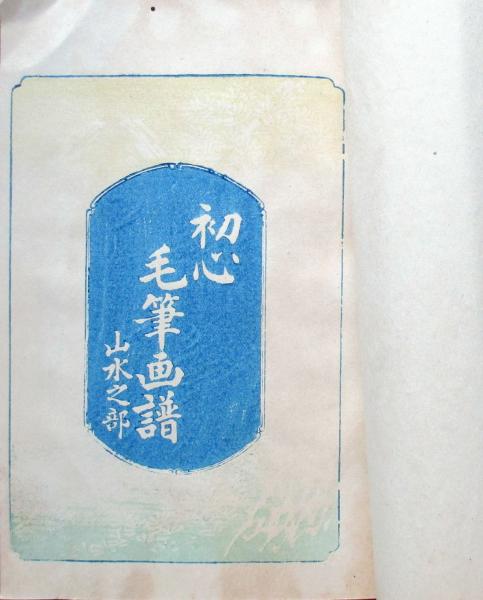 初心
毛筆画譜
山水之部